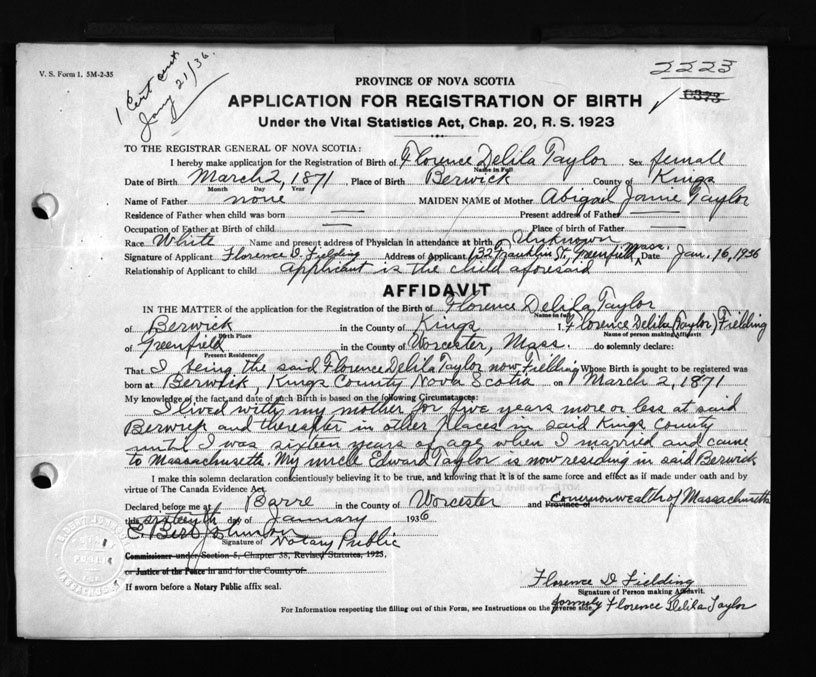 V. S. Form 1, 5M-2-35
1 Cert
Jany 21/36.
2223
PROVINCE OF NOVA SCOTIA
APPLICATION FOR REGISTRATION OF BIRTH ✓ 6373
Under the Vital Statistics Act, Chap. 20, R. S. 1923
TO THE REGISTRAR GENERAL OF NOVA SCOTIA:
I hereby make application for the Registration of Birth of Florence Delila Taylor Sex female
Name in Full
Date of Birth March 2, 1871, Place of Birth Berwick County of Kings
Month Day Year
Name of Father none MAIDEN NAME of Mother Abigail Jane Taylor
Residence of Father when child was born — Present address of Father —
Occupation of Father at Birth of child — Place of birth of Father —
Race White Name and present address of Physician in attendance at birth Unknown
Signature of Applicant Florence D. Fielding Address of Applicant 132 Franklin St., Greenfield, Mass. Date Jan. 16, 1936
Relationship of Applicant to child Applicant is the child aforesaid
AFFIDAVIT
IN THE MATTER of the application for the Registration of the Birth of Florence Delila Taylor
Name in full
of Berwick in the County of Kings I, Florence Delila (Taylor) Fielding
Birth Place Name of person making Affidavit
of Greenfield in the County of Worcester, Mass. do solemnly declare:
Present Residence
That I being the said Florence Delila Taylor now Fielding Whose Birth is sought to be registered was
born at Berwick, Kings County Nova Scotia on March 2, 1871
My knowledge of the fact and date of such Birth is based on the following Circumstances:
I lived with my mother for five years more or less at said
Berwick and thereafter in other places in said Kings County
until I was sixteen years of age when I married and came
to Massachusetts. My uncle Edward Taylor is now residing in said Berwick
I make this solemn declaration conscientiously believing it to be true, and knowing that it is of the same force and effect as if made under oath and by
virtue of The Canada Evidence Act.
Declared before me at Barre in the County of Worcester and Province of Commonwealth of Massachusetts
this sixteenth day of January 1936
C. Bert Johnson
Signature of Notary Public
Commissioner under Section 5, Chapter 38, Revised Statutes, 1923,
or Justice of the Peace in and for the County of
If sworn before a Notary Public affix seal.
Florence D Fielding
Signature of Person making Affidavit.
formerly Florence Delila Taylor
For Information respecting the filling out of this Form, see Instructions on the reverse side.